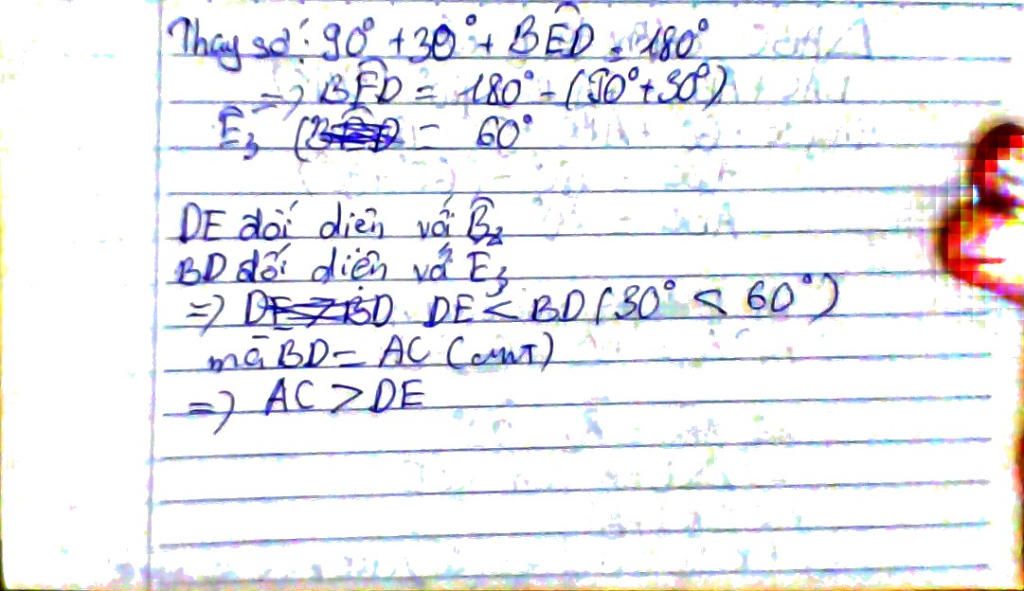 Thay số: 90° + 30° + BÊD = 180°
=> BÊD = 180° - (90° + 30°)
Ê₃ = 60°
DE đối diện với B̂₂
BD đối diện với Ê₃
=> DE < BD (30° < 60°)
mà BD = AC (cmt)
=> AC > DE